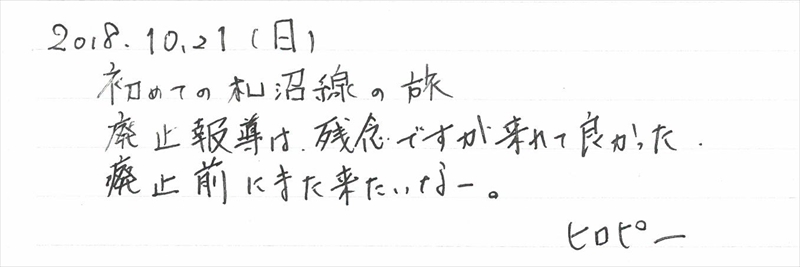 2018.10.21(日)
初めての札沼線の旅
廃止報導は、残念ですが来れて良かった.
廃止前にまた来たいなー。
ヒロピー